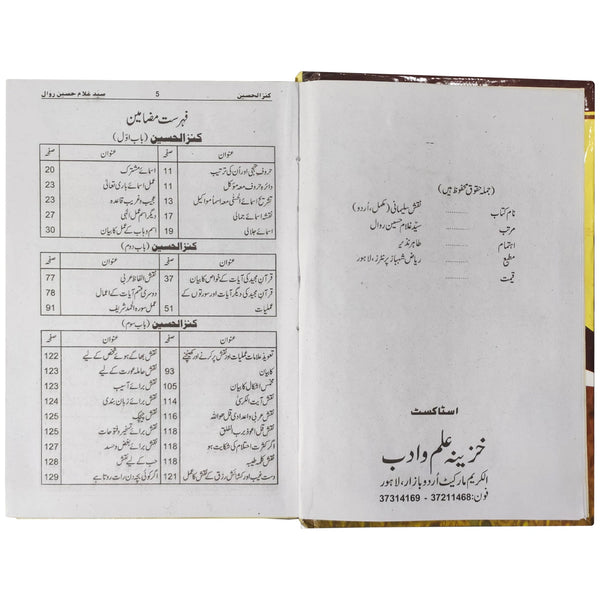 (جملہ حقوق محفوظ ہیں)
نام کتاب ........ نقش سلیمانی (مکمل، اُردو)
مرتب ........ سیّد غلام حسین روال
اہتمام ........ طاہر نذیر
مطبع ........ ریاض شہباز پرنٹرز، لاہور
قیمت ........
اسٹاکسٹ
خزینہ علم و ادب
الکریم مارکیٹ اُردو بازار، لاہور
فون: 37211468 - 37314169
کنز الحسین 5 سید غلام حسین روال
فہرست مضامین
کنز الحسین (باب اوّل)
عنوان صفحہ عنوان صفحہ
حروف تہجی اور اُن کی ترتیب 11 اسمائے مشترک 20
دائرہ حروف معہ مؤکل 11 عمل اسمائے باری تعالیٰ 23
تشریح اسمائے الحسنٰی معہ اسما مؤاکیل 13 عجیب و غریب قاعدہ 23
نقشہ اسمائے جمالی 17 دیگر اسم عمل الٰہی 27
اسمائے جلالی 19 اسم وہاب کے عمل کا بیان 30
کنز الحسین (باب دوم)
عنوان صفحہ عنوان صفحہ
قرآن مجید کی آیات کے خواص کا بیان 37 نقش الفاظ عربی 77
قرآن مجید کی دیگر آیات اور سورتوں کے دوسری قسم آیات کے اعمال 78
عملیات 51 عمل سورہ الحمد شریف 91
کنز الحسین (باب سوم)
عنوان صفحہ عنوان صفحہ
تعویذ علامات عملیات اور نقش پر کرنے اور کھینچنے نقش بھاگے ہوئے شخص کے لیے 122
کا بیان 93 نقش حاملہ عورت کے لیے 123
مخمس اشکال کا بیان 105 نقش برائے آسیب 123
نقش آیت الکرسی 114 نقش برائے زبان بندی 124
نقش عربی و اعدادی قل ھو اللہ 116 نقش چیچک 125
نقش قل اعوذ برب الفلق 118 نقش برائے تسخیر و فتوحات 125
اگر کثرت احتلام کی شکایت ہو 118 نقش برائے بغض و حسد 127
نقش کلمہ طیبہ 118 حب کے لیے نقش 128
دست غیب اور کشائش رزق کے نقش کا عمل 121 اگر کوئی بچہ دن رات روتا ہے 129